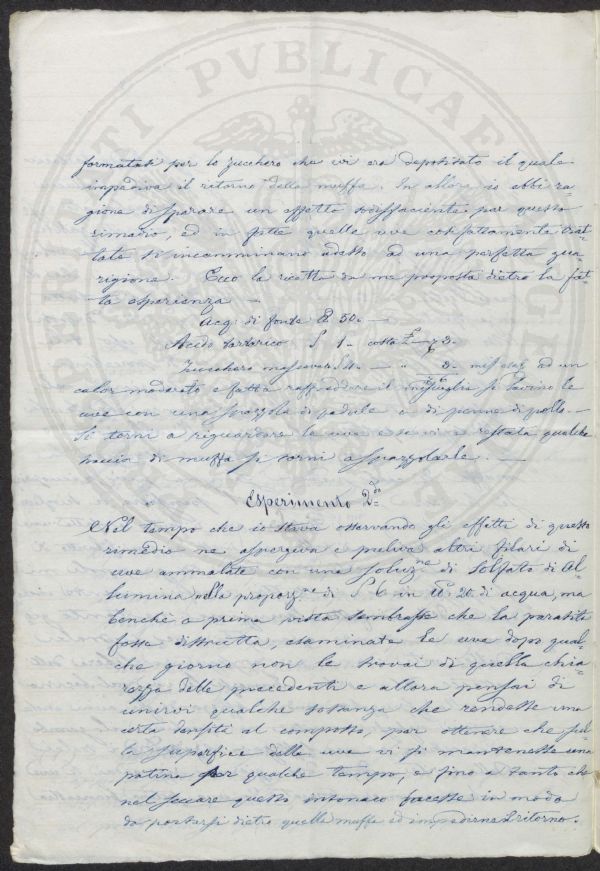 formatasi per lo zucchero che vi era depositato il quale
impediva il ritorno della muffa. In allora io ebbi ra-
gione di sperare un effetto soddisfacente per questo
rimedio, ed in fatti quelle uve così fattamente trat-
tate si incamminano adesso ad una perfetta gua-
rigione. Ecco la ricetta da me proposta dietro la fat-
ta esperienza —
Acq: di fonte 50. —
Acido tartarico 1. costa
Zucchero ad un
calor moderato e fatta raffreddare il si lavino le
uve con una spazzola di padule o di penne di pollo. —
Si torni a riguardare le uve e se vi è restata qualche
traccia di muffa si torni a spazzolarle. —
Esperimento 2.do
Nel tempo che io stava osservando gli effetti di questo
rimedio ne aspergeva e puliva altri filari di
uve ammalate con una soluz.ne di Solfato di Al-
lumina nella proporz.ne di 6 in 20. di acqua, ma
benchè a prima vista sembrasse che la parasita
fosse distrutta, esaminate le uve dopo qual-
che giorno non le trovai di quella chia-
rezza delle precedenti e allora pensai di
unirvi qualche sostanza che rendesse una
certa densità al composto, per ottenere che sul-
la superfice delle uve vi si mantenesse una
patina per qualche tempo, e fino a tanto che
nel seccare questo intonaco facesse in modo
da portarsi dietro quella muffa ed impedirne il ritorno.
PVBLICAE